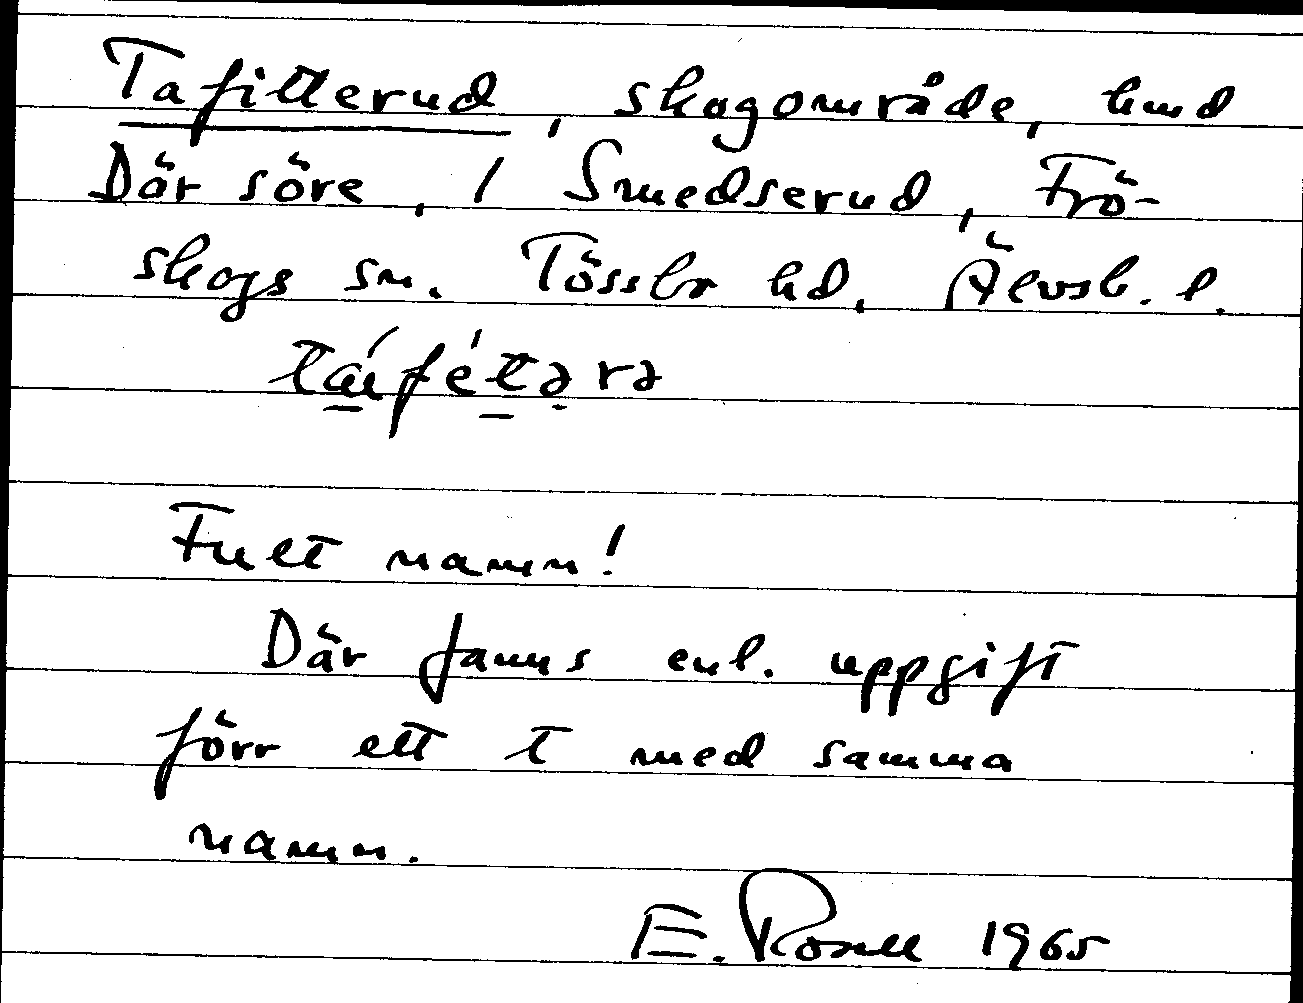 Tafitterud, skogområde, hmd
Där söre, 1 Smedserud, Frö-
skogs sn. Tössbo hd, Älvsb. l.
tá̱fé̱tə̣rə
Fult namn!
Där fanns enl. uppgift
förr ett t med samma
namn.
E. Rosell 1965